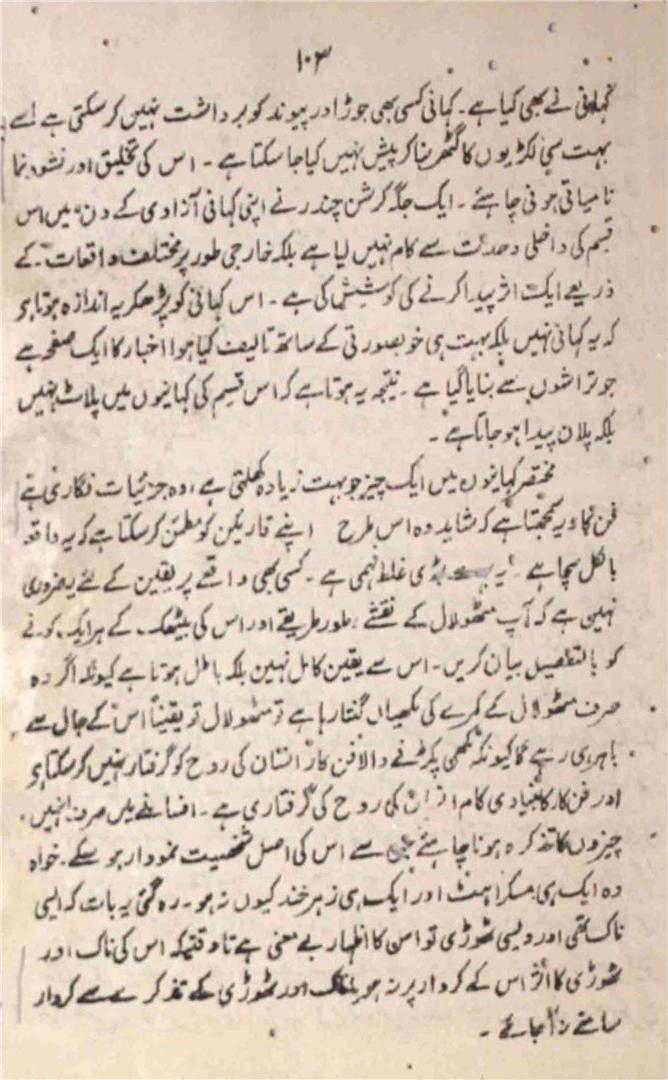 ۱۰۳
کہانی نے بھی کیا ہے۔ کہانی کسی بھی جوڑ اور پیوند کو برداشت نہیں کر سکتی ہے اسے
بہت سی لکڑیوں کا گٹھر بنا کر پیش نہیں کیا جا سکتا ہے۔ اس کی تخلیق اور نشوونما
نامیاتی ہونی چاہئے۔ ایک جگہ کرشن چندر نے اپنی کہانی آزادی کے دن، میں اس
قسم کی داخلی وحدت سے کام نہیں لیا ہے بلکہ خارجی طور پر مختلف واقعات۔ کے
ذریعے ایک اثر پیدا کرنے کی کوشش کی ہے۔ اس کہانی کو پڑھکر یہ اندازہ ہوتا ہو
کہ یہ کہانی نہیں بلکہ بہت ہی خوبصورتی کے ساتھ تالیف کیا ہوا اخبار کا ایک صفحہ ہے
جو تراشوں سے بنایا گیا ہے۔ نتیجہ یہ ہوتا ہے کہ اس قسم کی کہانیوں میں پلاٹ نہیں
بلکہ پلان پیدا ہو جاتا ہے۔
مختصر کہانیوں میں ایک چیز جو بہت زیادہ کھلتی ہے، وہ جزئیات نگاری ہے
فن کار یہ سمجھتا ہے کہ شاید وہ اس طرح اپنے قارئین کو مطمئن کر سکتا ہے کہ یہ واقعہ
بالکل سچا ہے۔ یہ بڑی غلط فہمی ہے۔ کسی بھی واقعے پر یقین کے لئے یہ ضروری
نہیں ہے کہ آپ مٹھو لال کے نقشے، طور طریقے اور اس کی بیٹھک کے ہر ایک کونے
کو بالتفصیل بیان کریں۔ اس سے یقین کامل نہیں بلکہ باطل ہوتا ہے کیونکہ اگر وہ
صرف مٹھو لال کے کمرے کی مکھیاں گنتا رہا ہے تو مٹھو لال تو یقیناً اس کے جال سے
باہر ہی رہے گا کیونکہ مکھی پکڑنے والا فن کار انسان کی روح کو گرفتار نہیں کر سکتا ہو
اور فن کار کا بنیادی کام انسان کی روح کی گرفتاری ہے۔ افسانے میں صرف انہیں
چیزوں کا تذکرہ ہونا چاہئے جن سے اس کی اصل شخصیت نمودار ہو سکے۔ خواہ
وہ ایک ہی مسکراہٹ اور ایک ہی زہر خند کیوں نہ ہو۔ رہ گئی یہ بات کہ ایسی
ناک تھی اور ویسی ٹھوڑی تو اس کا اظہار بے معنی ہے تا وقتیکہ اس کی ناک اور
ٹھوڑی کا اثر اس کے کردار پر نہ ہو یا ناک اور ٹھوڑی کے تذکرے سے کردار
سامنے نہ آ جائے۔